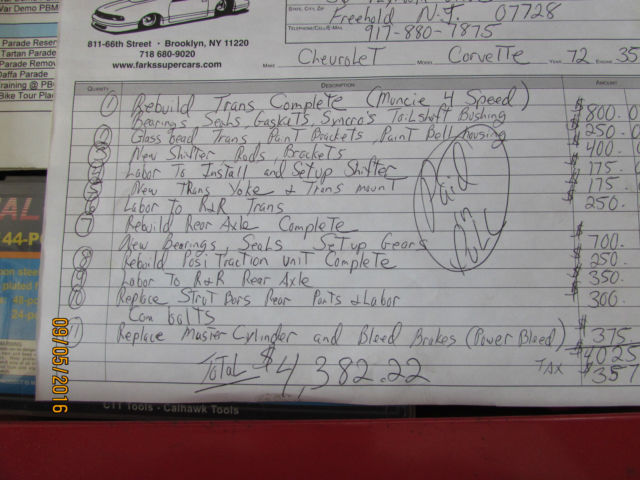 War Demo PBM
Parade Reser
Tartan Parade
Parade Remov
Daffa Parade
Training @ PB
Bike Tour Plac
811-66th Street • Brooklyn, NY 11220
718 680-9020
www.farkssupercars.com
STATE, CITY, ZIP
Freehold N.J. 07728
917-880-7875
MAKE Chevrolet MODEL Corvette YEAR 72 ENGINE 35
QUANTITY DESCRIPTION AMOUNT
1 Rebuild Trans Complete (Muncie 4 Speed)
Bearings, Seals, Gaskets, Syncro's Tailshaft Bushing $800.0
2 Glass bead Trans Paint Brackets, Paint Bell housing $250.0
3 New Shifter Rods, Brackets $400.
4 Labor To Install and Setup Shifter $175.
5 New Trans Yoke & Trans mount $175.
6 Labor To R&R Trans $250.
7 Rebuild Rear Axle Complete
New Bearings, Seals Setup Gears $700.
8 Rebuild PosiTraction unit Complete $250.
9 Labor To R&R Rear Axle $350.
10 Replace Strut Bars Rear Parts & Labor $300.
Cam bolts
11 Replace Master Cylinder and Bleed Brakes (Power Bleed) $375.
$4025
Total $4,382.22 TAX $357
Paid in
09/05/2016
AL
44-P
CTT Tools - Calhawk Tools